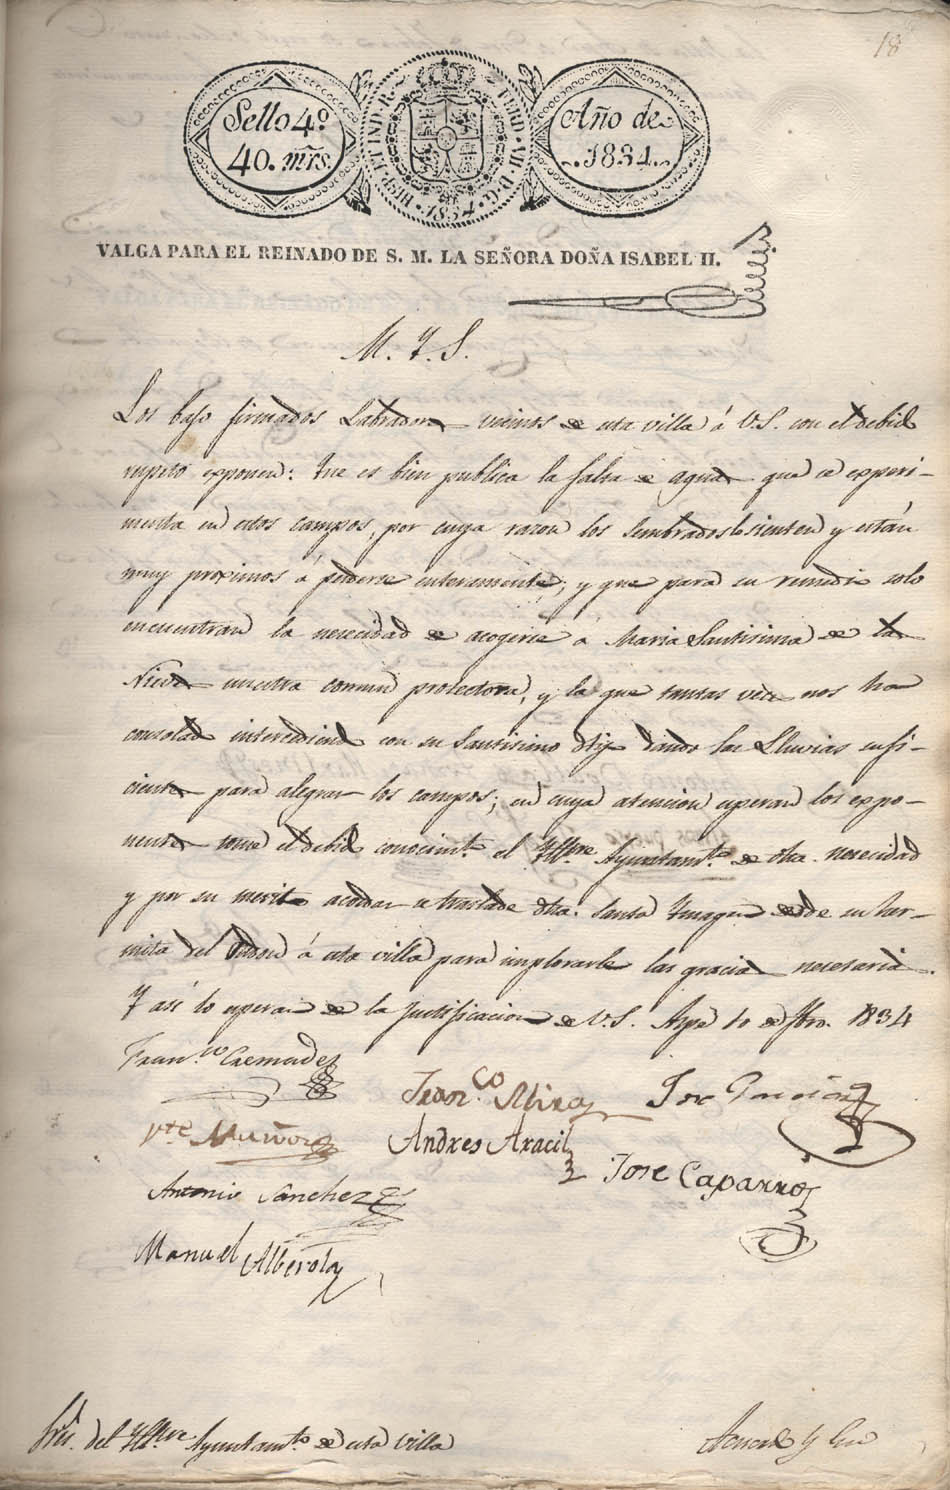 18
Sello 4.º
40. mrs.
HISP. ET IND. R. FERD. VII. D. G.
1834
Año de
1834.
VALGA PARA EL REINADO DE S. M. LA SEÑORA DOÑA ISABEL II.
M. Y. S.
Los bajo firmados Labradores vecinos de esta villa á V.S. con el debido
respeto exponen: Que es bien publica la falta de aguas que se experi-
menta en estos campos, por cuya razon los sembrados lo sienten y están
muy proximos á perderse enteramente; y que para su remedio solo
encuentran la necesidad de acogerse á Maria Santisima de las
Nieves nuestra comun protectora, y la que tantas veces nos ha
consolado intercediendo con su Santisimo Hijo dando las Lluvias sufi-
cientes para alegrar los campos; en cuya atencion esperan los expo-
nentes tome el debido conocimto. el Ylltre Ayuntamto. de dha. necesidad
y por su merito acordar se traslade dha. Santa Ymagen desde su her-
mita del á esta villa para implorarle las gracias necesarias.
Y así lo esperan de la justificacion de V.S. Aspe 10 de 1834
Franco. Cremades
Franco. Mira
Jose
Vte Muñoz
Andres Aracil
Jose Caparros
Antonio Sanchez
Manuel Alberola
del Yltre Ayuntamto. de esta villa